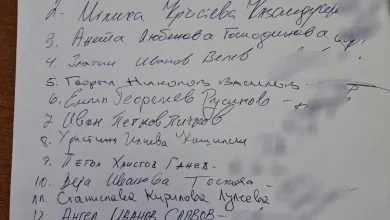 2. Милка Кръстева
3. Анета Любенова Господинова
4. Златин Иванов Велев
5. Георги Николов Василев
6. Емил Георгиев Русинов
7 Иван Петков Пичков
8. Христина Илиева
9. Петьо Христов Ганев
10. Деја Иванова Тоскова
11. Станислава Кирилова
12. Ангел Иванов Славов